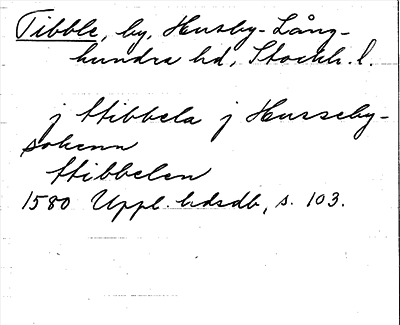 Tibble, by, Husby-Lång-
hundra hd, Stockh. l.
j ttibbela j Husseby-
sokenn
ttibbelen
1580 Uppl. hdsdb, s. 103.